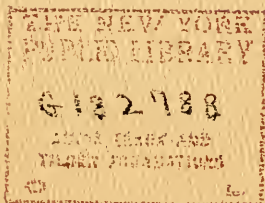 THE NEW YORK
PUBLIC LIBRARY
G182788
ASTOR, LENOX AND
TILDEN FOUNDATIONS